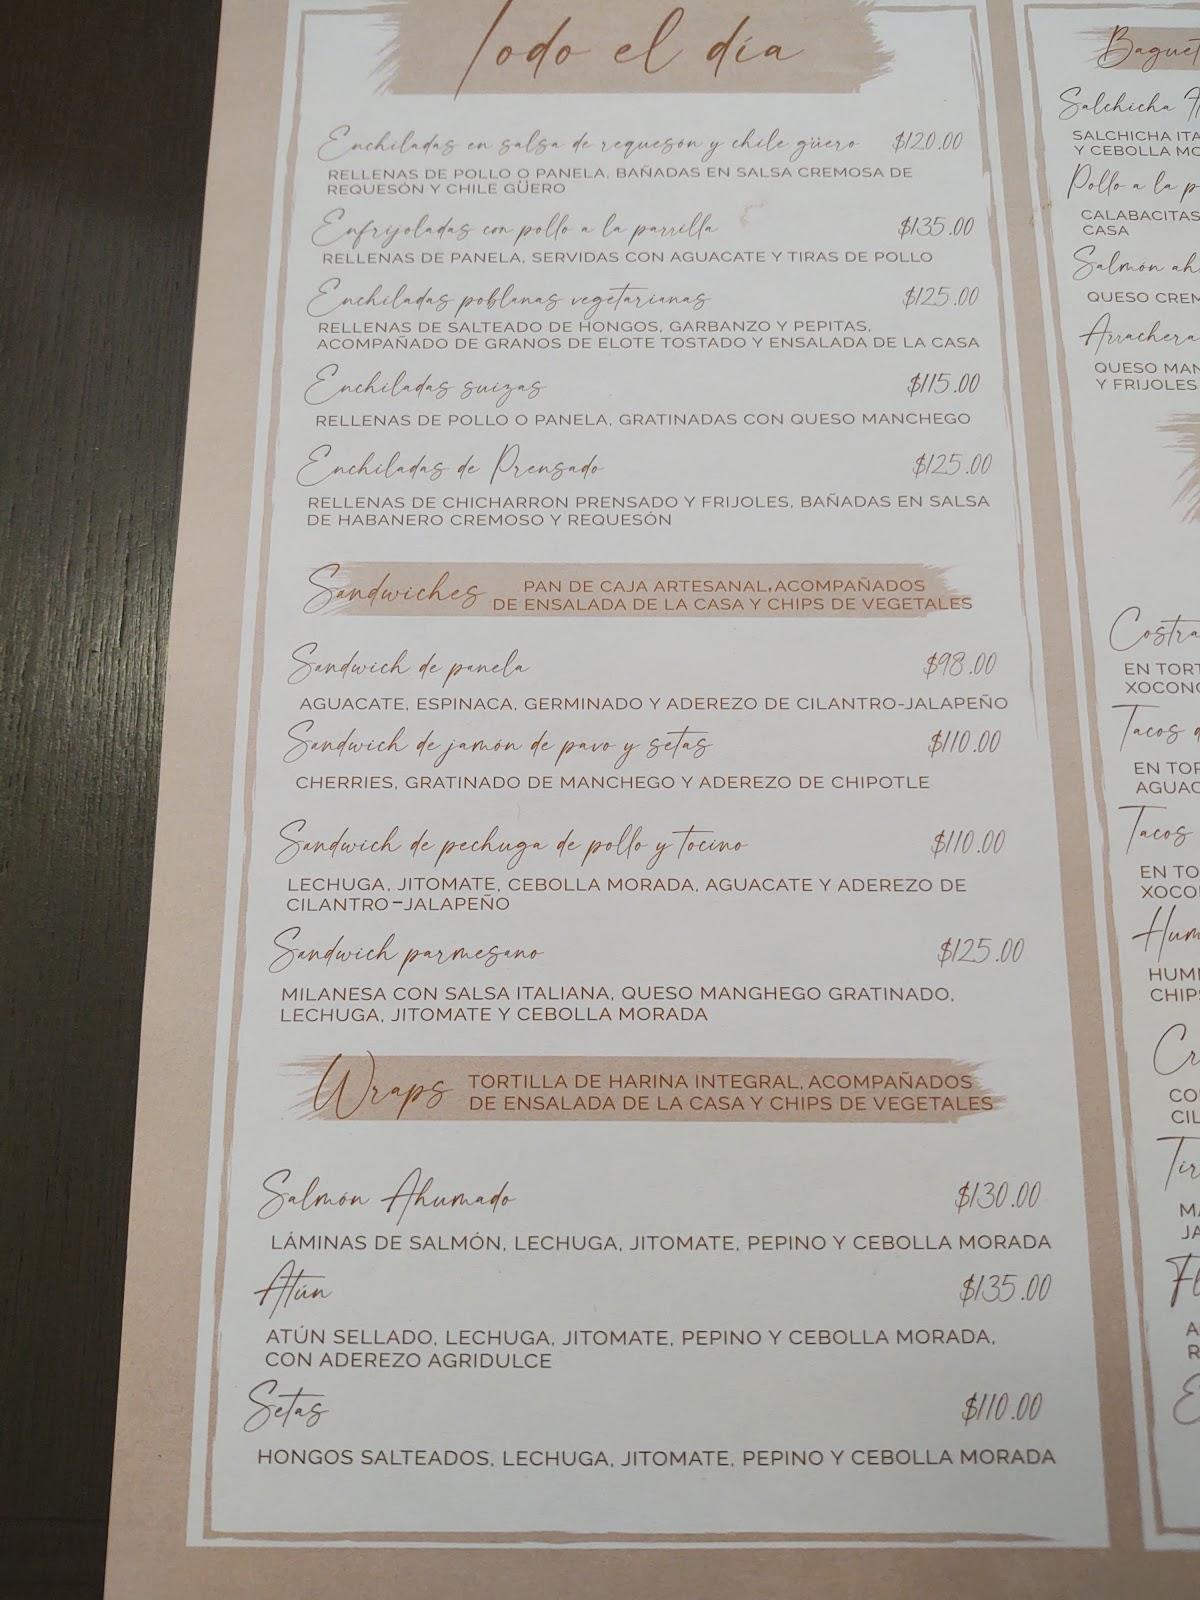 Todo el día
Enchiladas en salsa de requesón y chile güero $120.00
RELLENAS DE POLLO O PANELA, BAÑADAS EN SALSA CREMOSA DE
REQUESÓN Y CHILE GÜERO
Enfrijoladas con pollo a la parrilla $135.00
RELLENAS DE PANELA, SERVIDAS CON AGUACATE Y TIRAS DE POLLO
Enchiladas poblanas vegetarianas $125.00
RELLENAS DE SALTEADO DE HONGOS, GARBANZO Y PEPITAS,
ACOMPAÑADO DE GRANOS DE ELOTE TOSTADO Y ENSALADA DE LA CASA
Enchiladas suizas $115.00
RELLENAS DE POLLO O PANELA, GRATINADAS CON QUESO MANCHEGO
Enchiladas de Prensado $125.00
RELLENAS DE CHICHARRON PRENSADO Y FRIJOLES, BAÑADAS EN SALSA
DE HABANERO CREMOSO Y REQUESÓN
Sandwiches PAN DE CAJA ARTESANAL, ACOMPAÑADOS
DE ENSALADA DE LA CASA Y CHIPS DE VEGETALES
Sandwich de panela $98.00
AGUACATE, ESPINACA, GERMINADO Y ADEREZO DE CILANTRO-JALAPEÑO
Sandwich de jamón de pavo y setas $110.00
CHERRIES, GRATINADO DE MANCHEGO Y ADEREZO DE CHIPOTLE
Sandwich de pechuga de pollo y tocino $110.00
LECHUGA, JITOMATE, CEBOLLA MORADA, AGUACATE Y ADEREZO DE
CILANTRO-JALAPEÑO
Sandwich parmesano $125.00
MILANESA CON SALSA ITALIANA, QUESO MANGHEGO GRATINADO,
LECHUGA, JITOMATE Y CEBOLLA MORADA
Wraps TORTILLA DE HARINA INTEGRAL, ACOMPAÑADOS
DE ENSALADA DE LA CASA Y CHIPS DE VEGETALES
Salmón Ahumado $130.00
LÁMINAS DE SALMÓN, LECHUGA, JITOMATE, PEPINO Y CEBOLLA MORADA
Atún $135.00
ATÚN SELLADO, LECHUGA, JITOMATE, PEPINO Y CEBOLLA MORADA,
CON ADEREZO AGRIDULCE
Setas $110.00
HONGOS SALTEADOS, LECHUGA, JITOMATE, PEPINO Y CEBOLLA MORADA
Salchicha
SALCHICHA
Y CEBOLLA
Pollo a la
CALABACITAS
CASA
Salmón
QUESO
Arrachera
QUESO
Y FRIJOLES
EN
Tacos
EN
Tacos
EN